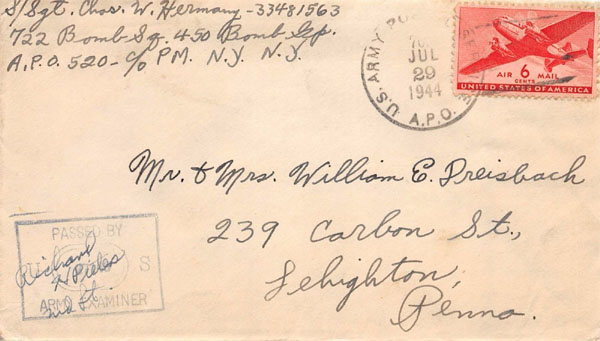 S/Sgt. Chas. W. Hermany - 33481563
722 Bomb-Sq. 450 Bomb Gp.
A.P.O. 520 - c/o P.M. N.Y. N.Y.
U.S. ARMY
JUL
29
1944
A.P.O.
AIR 6 MAIL
CENTS
UNITED STATES OF AMERICA
Mr. & Mrs. William E. Dreisbach
239 Carbon St.,
Lehighton,
Penna.
PASSED BY
U S
Richard
2nd Lt.
ARMY EXAMINER